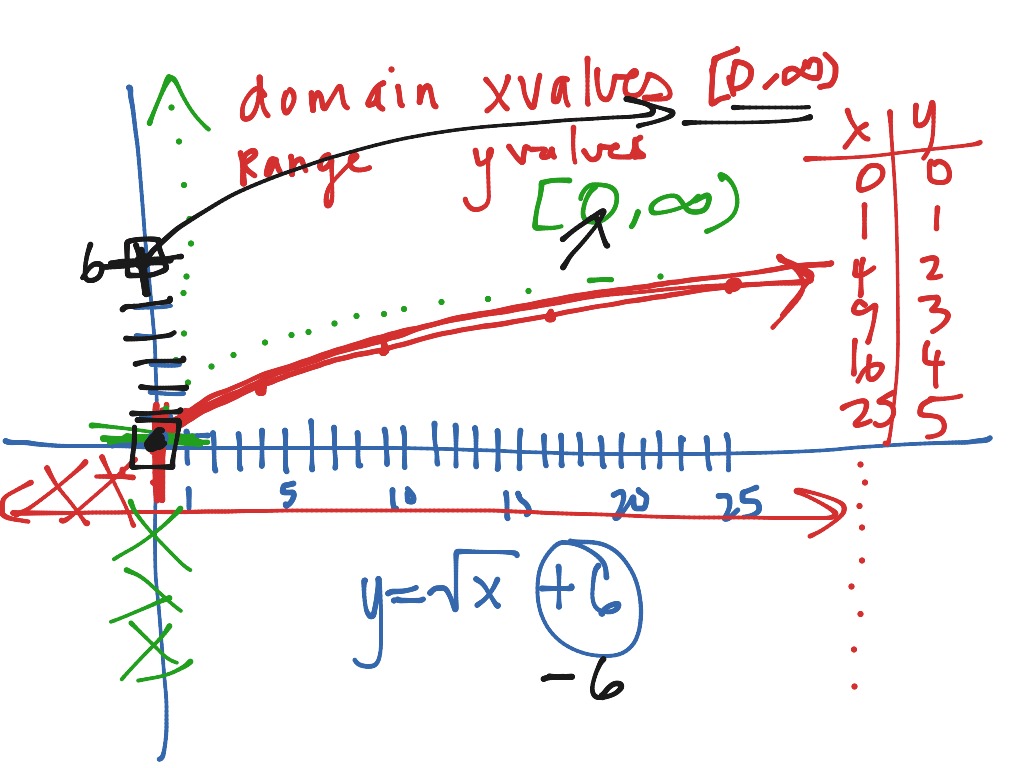 domain xvalues [0,∞)
Range y values
[0,∞)
x y
0 0
1 1
4 2
9 3
16 4
25 5
6
1 5 10 15 20 25
y=√x +6
-6